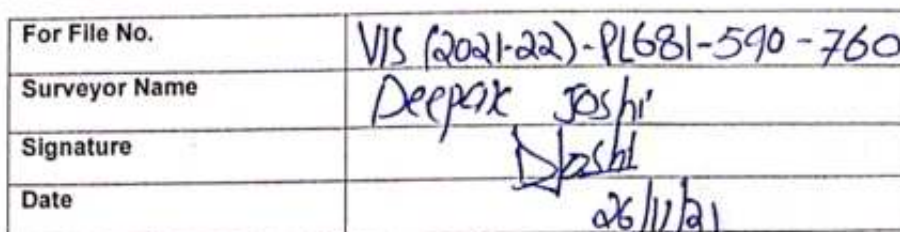 For File No. VIS (2021-22)-PL681-590-760
Surveyor Name Deepak Joshi
Signature DJoshi
Date 26/11/21